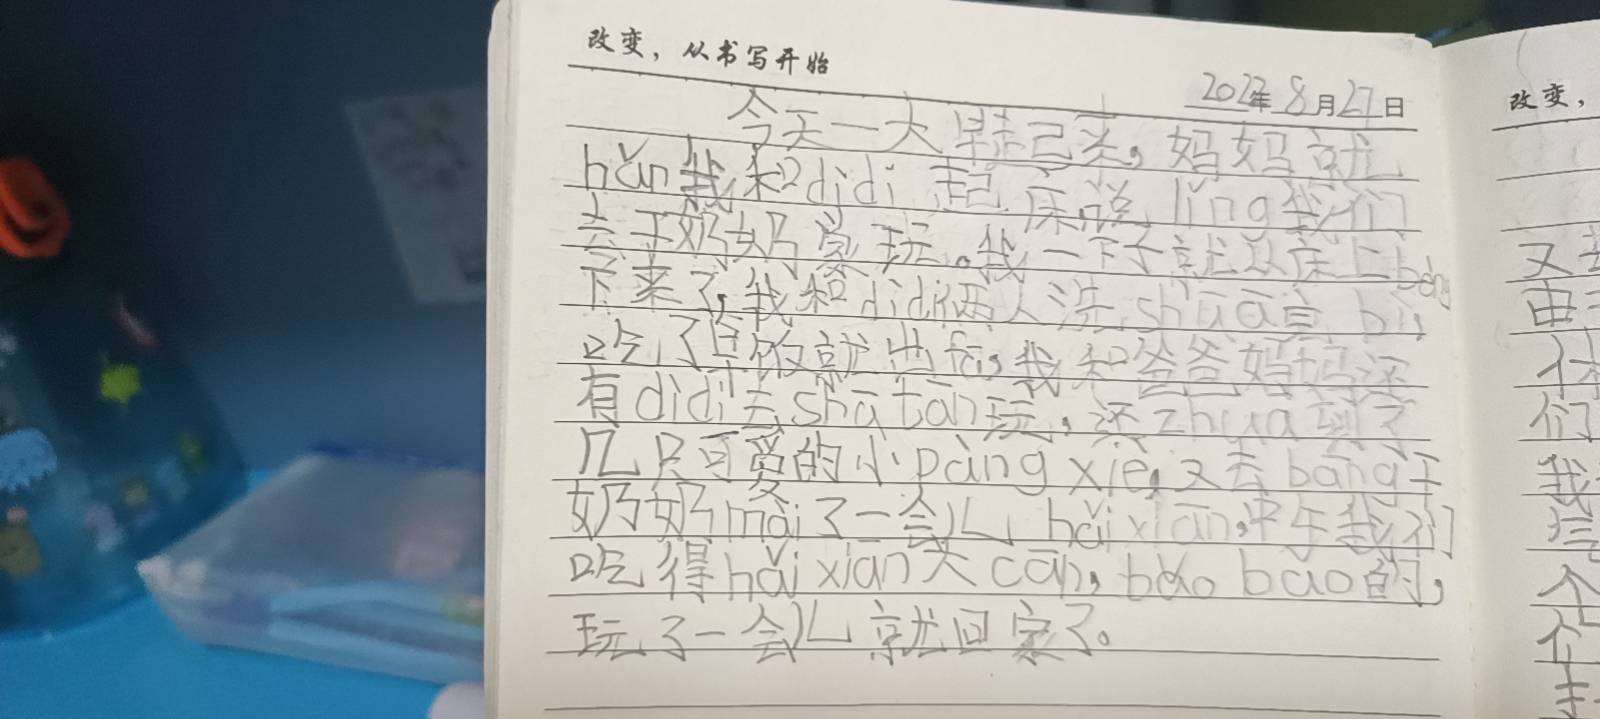 改变，从书写开始
2022年8月27日
今天一大早起己来，妈妈就
hǎn我和didi起床，说lǐng我们
去于奶奶家玩。我一下子就从床上bèng
下来了，我和didi俩人洗shūā完bì，
吃了早饭就出fā，我和爸爸妈妈还
有didi去shā tān玩，还zhuā到了
几只可爱的小páng xiè，又去bāng于
奶奶mài了一会儿hǎi xiān，中午我们
吃得hǎi xiān大cān，bǎo bāo的，
玩了一会儿就回家了。
改变，
又
由
们
我
个